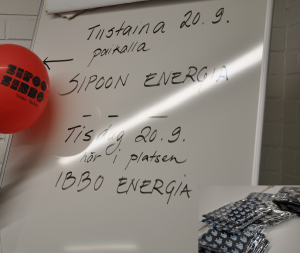 Tiistaina 20.9.
paikalla
SIPOON ENERGIA
Tisdag 20.9.
här i platsen
IBBO ENERGIA